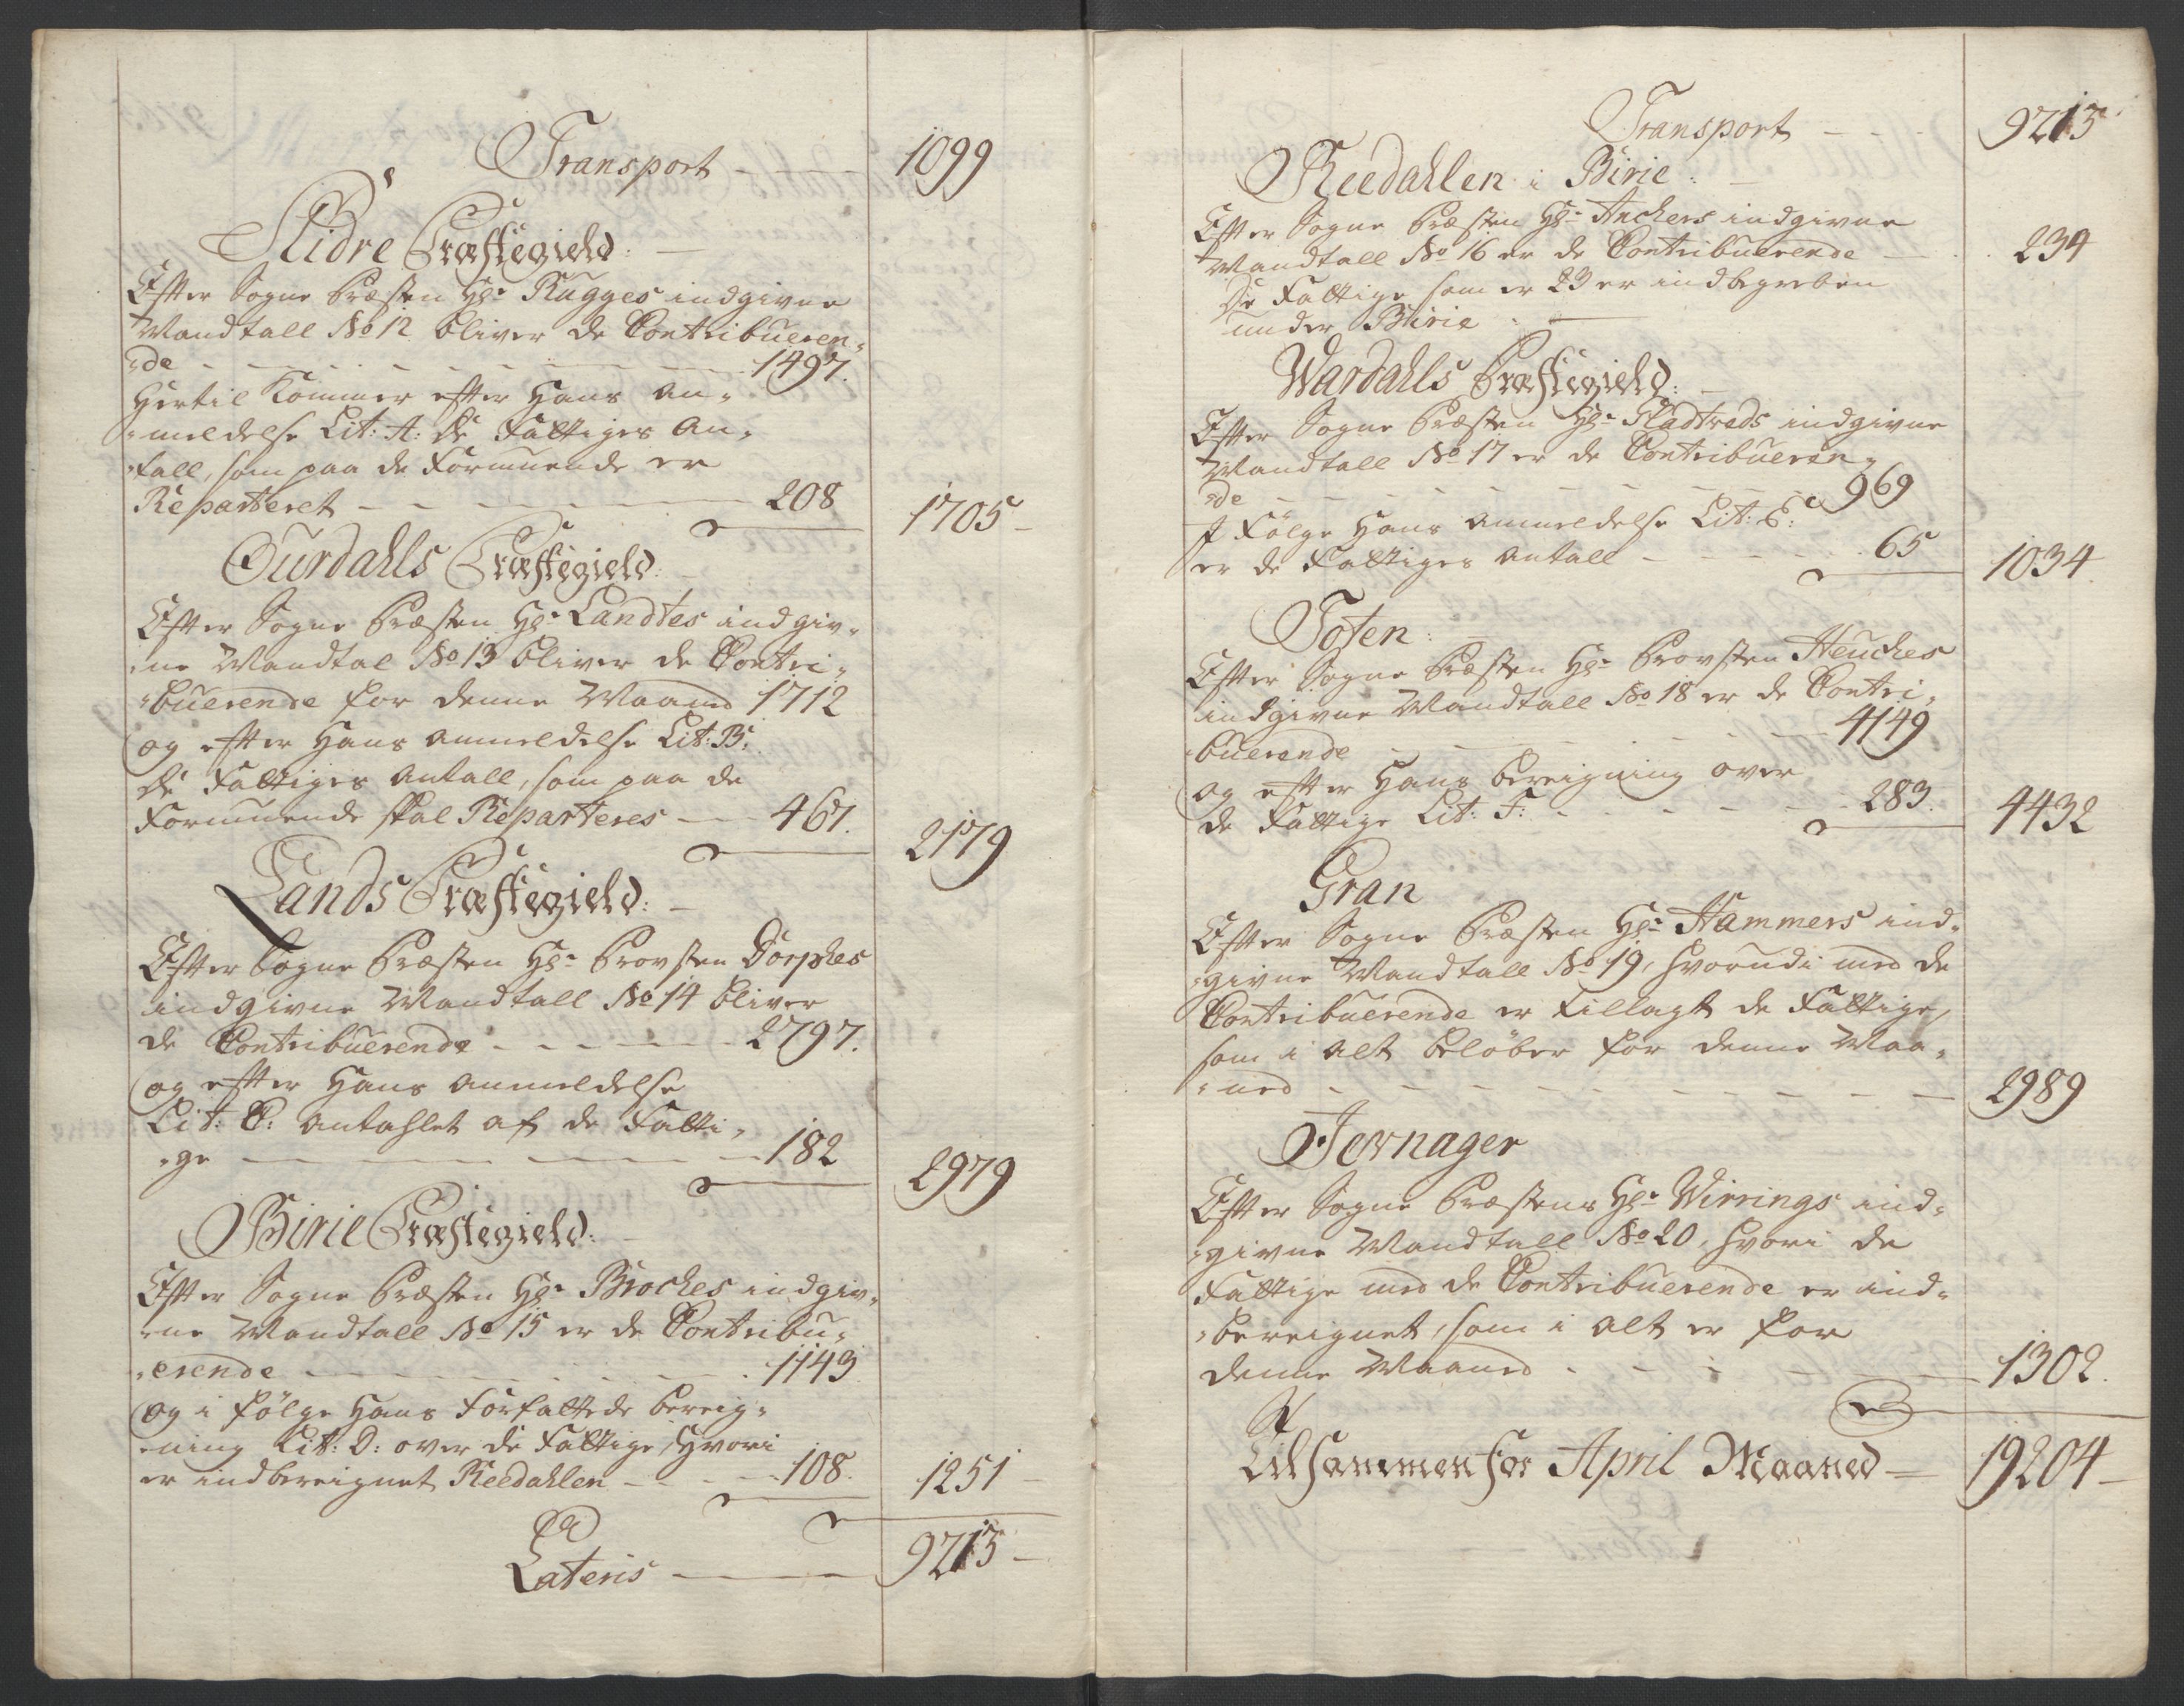 Transport - - - 1099
Slidre Præstegield: -
Efter Sogne Præsten Hr. Rugges indgivne
Mandtall No 12 bliver de Contribueren-
-de - - - - - - 1497.
Hertil kommer efter Hans An-
-meldelse Lit: A: De Fattiges An-
-tall, som paa de Formuende er
Reparteret - - - - - 208 1705 -
Ourdahls Præstegield: -
Efter Sogne Præsten Hr. Landtes indgiv-
-ne Mandtal No 13 bliver de Contri-
-buerende for denne Maaned 1712
og efter Hans Anmeldelse Lit: B:
De Fattiges Antall, som paa de
Formuende skal Reparteres - - 467. 2179
Lands Præstegield: -
Efter Sogne Præsten Hr. Provsten Dorphes
indgivne Mandtall No 14 bliver
de Contribuerende - - - - - 2797.
og efter Hans Anmeldelse
Lit: C: Antahlet af de Fatti-
-ge - - - - - 182 2979
Birie Præstegield: -
Efter Sogne Præsten Hr. Broches indgiv-
-ne Mandtall No 15 er de Contribu-
-erende - - - - - - 1143
og i følge Hans Forfattede bereig-
-ning Lit: D: over de Fattige, hvori
er indbereignet Reedahlen - - - 108. 1251
Lateris - - 9213 -
Transport - - - 9213
Reedahlen i Birie: -
Efter Sogne Præsten Hr. Anchers indgivne
Mandtall No 16 er de Contribuerende - . 234
De Fattige som er 23 er indbegreben
under Birie -
Wardahls Præstegield: -
Efter Sogne Præsten Hr. Fladtreds indgivne
Mandtall No 17 er de Contribueren-
-de - - - - - - - 969
I Følge Hans Anmeldelse Lit: E:
er de Fattiges Antall - - - - - 65 1034.
Toten:
Efter Sogne Præsten Hr. Provsten Heuches
indgivne Mandtall No 18 er de Contri-
-buerende - - - - - - 4149
og efter Hans bereigning over
de Fattige Lit: F: - - - - - 283. 4432
Gran
Efter Sogne Præsten Hr. Hammers ind-
-givne Mandtall No 19, hvorudi med de
Contribuerende er tillagt de Fattige,
som i alt beløber for denne Maa-
-ned - - - - - - - - 2989
Jevnager
Efter Sogne Præstens Hr. Wirrings ind-
-givne Mandtall No 20, hvori de
Fattige med de Contribuerende er ind-
-bereignet, som i alt er for
denne Maaned - - - - - 1302.
Tilsammen for April Maaned = 19204 -